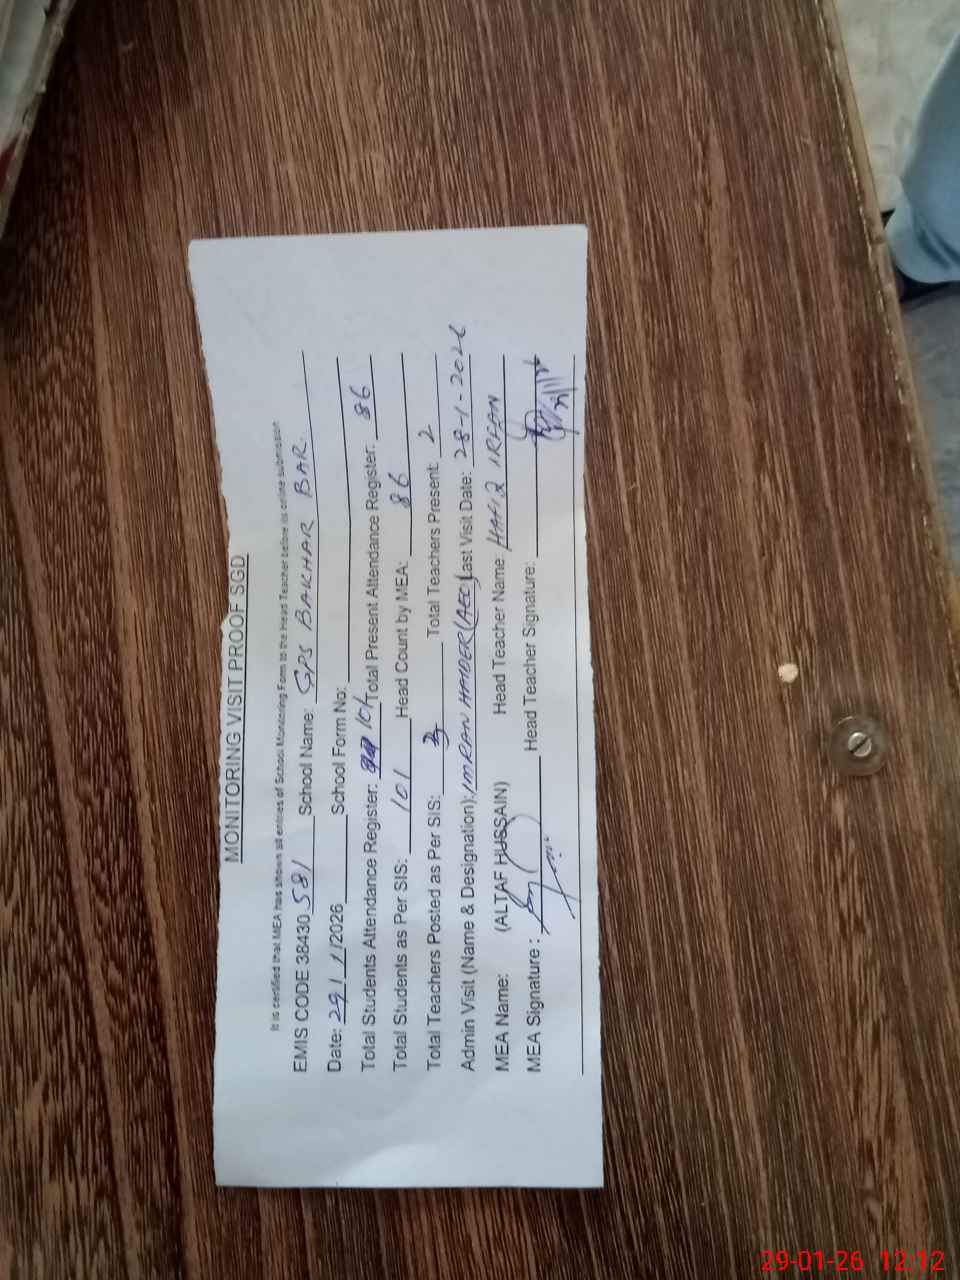 MONITORING VISIT PROOF SGD
It is certified that MEA has shown all entries of School Monitoring Form to the Head Teacher before its online submission
EMIS CODE 38430 581 School Name: GPS BAKHAR BAR.
Date: 29/1/2026 School Form No:
Total Students Attendance Register: 101 Total Present Attendance Register: 86
Total Students as Per SIS: 101 Head Count by MEA: 86
Total Teachers Posted as Per SIS: Total Teachers Present: 2
Admin Visit (Name & Designation): IMRAN HAIDER (AEO) Last Visit Date: 28-1-2026
MEA Name: (ALTAF HUSSAIN) Head Teacher Name: HAFIZ IRFAN
MEA Signature : Head Teacher Signature:
29-01-26 12:12